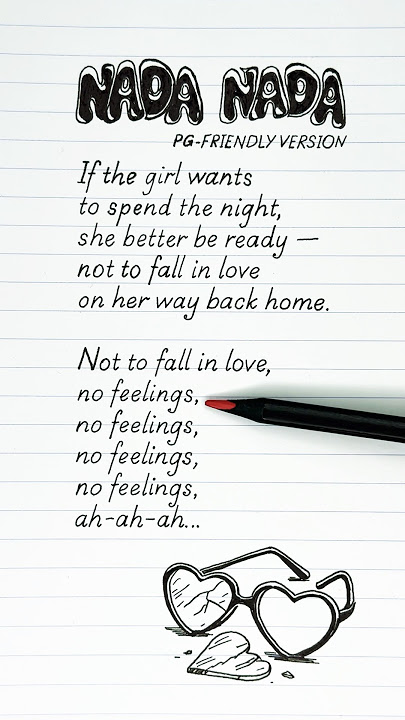 NADA NADA
PG-FRIENDLY VERSION
If the girl wants
to spend the night,
she better be ready —
not to fall in love
on her way back home.
Not to fall in love,
no feelings,
no feelings,
no feelings,
no feelings,
ah-ah-ah...